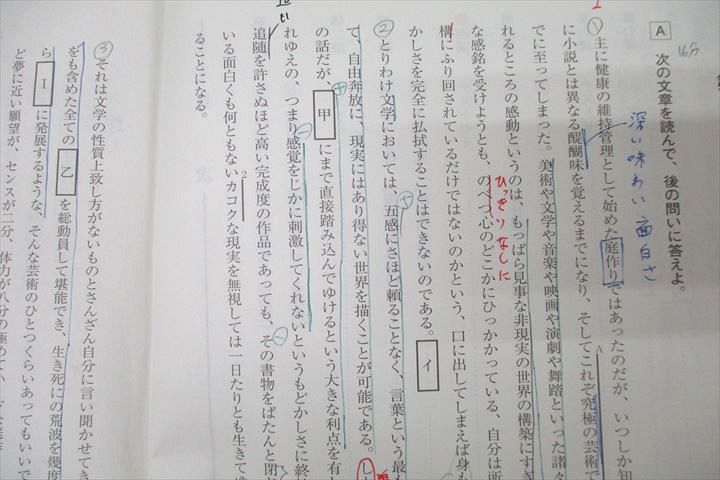 A 次の文章を読んで、後の問いに答えよ。
16分
深い味わい 面白さ
① 主に健康の維持管理として始めた庭作りではあったのだが、いつしか知
に小説とは異なる醍醐味を覚えるまでになり、そしてこれぞ究極の芸術で
A
でに至ってしまった。美術や文学や音楽や映画や演劇や舞踏といった諸々
れるところの感動というのは、もっぱら見事な非現実の世界の構築にすぎ
な感銘を受けようとも、のべつ心のどこかにひっかかっている、自分は所
ひっきりなしに
構にふり回されているだけではないのかという、口に出してしまえば身も
かしさを完全に払拭することはできないのである。 イ
② とりわけ文学においては、五感にさほど頼ることなく、言葉という最も
て、自由奔放に、現実にはあり得ない世界を描くことが可能である。し
の話だが、 甲 にまで直接踏み込んでゆけるという大きな利点を有し
れゆえの、つまり感覚をじかに刺激してくれないというもどかしさに終
追随を許さぬほど高い完成度の作品であっても、その書物をぱたんと閉
いる面白くも何ともないカコクな現実を無視しては一日たりとも生きて
2
ることになる。
③ それは文学の性質上致し方がないものとさんざん自分に言い聞かせてき
をも含めた全ての 乙 を総動員して堪能でき、生き死にの荒波を幾度
ら I に発展するような、そんな芸術のひとつくらいあってもいいで
ど夢に近い願望が、センスが二分、体力が八分の極めて